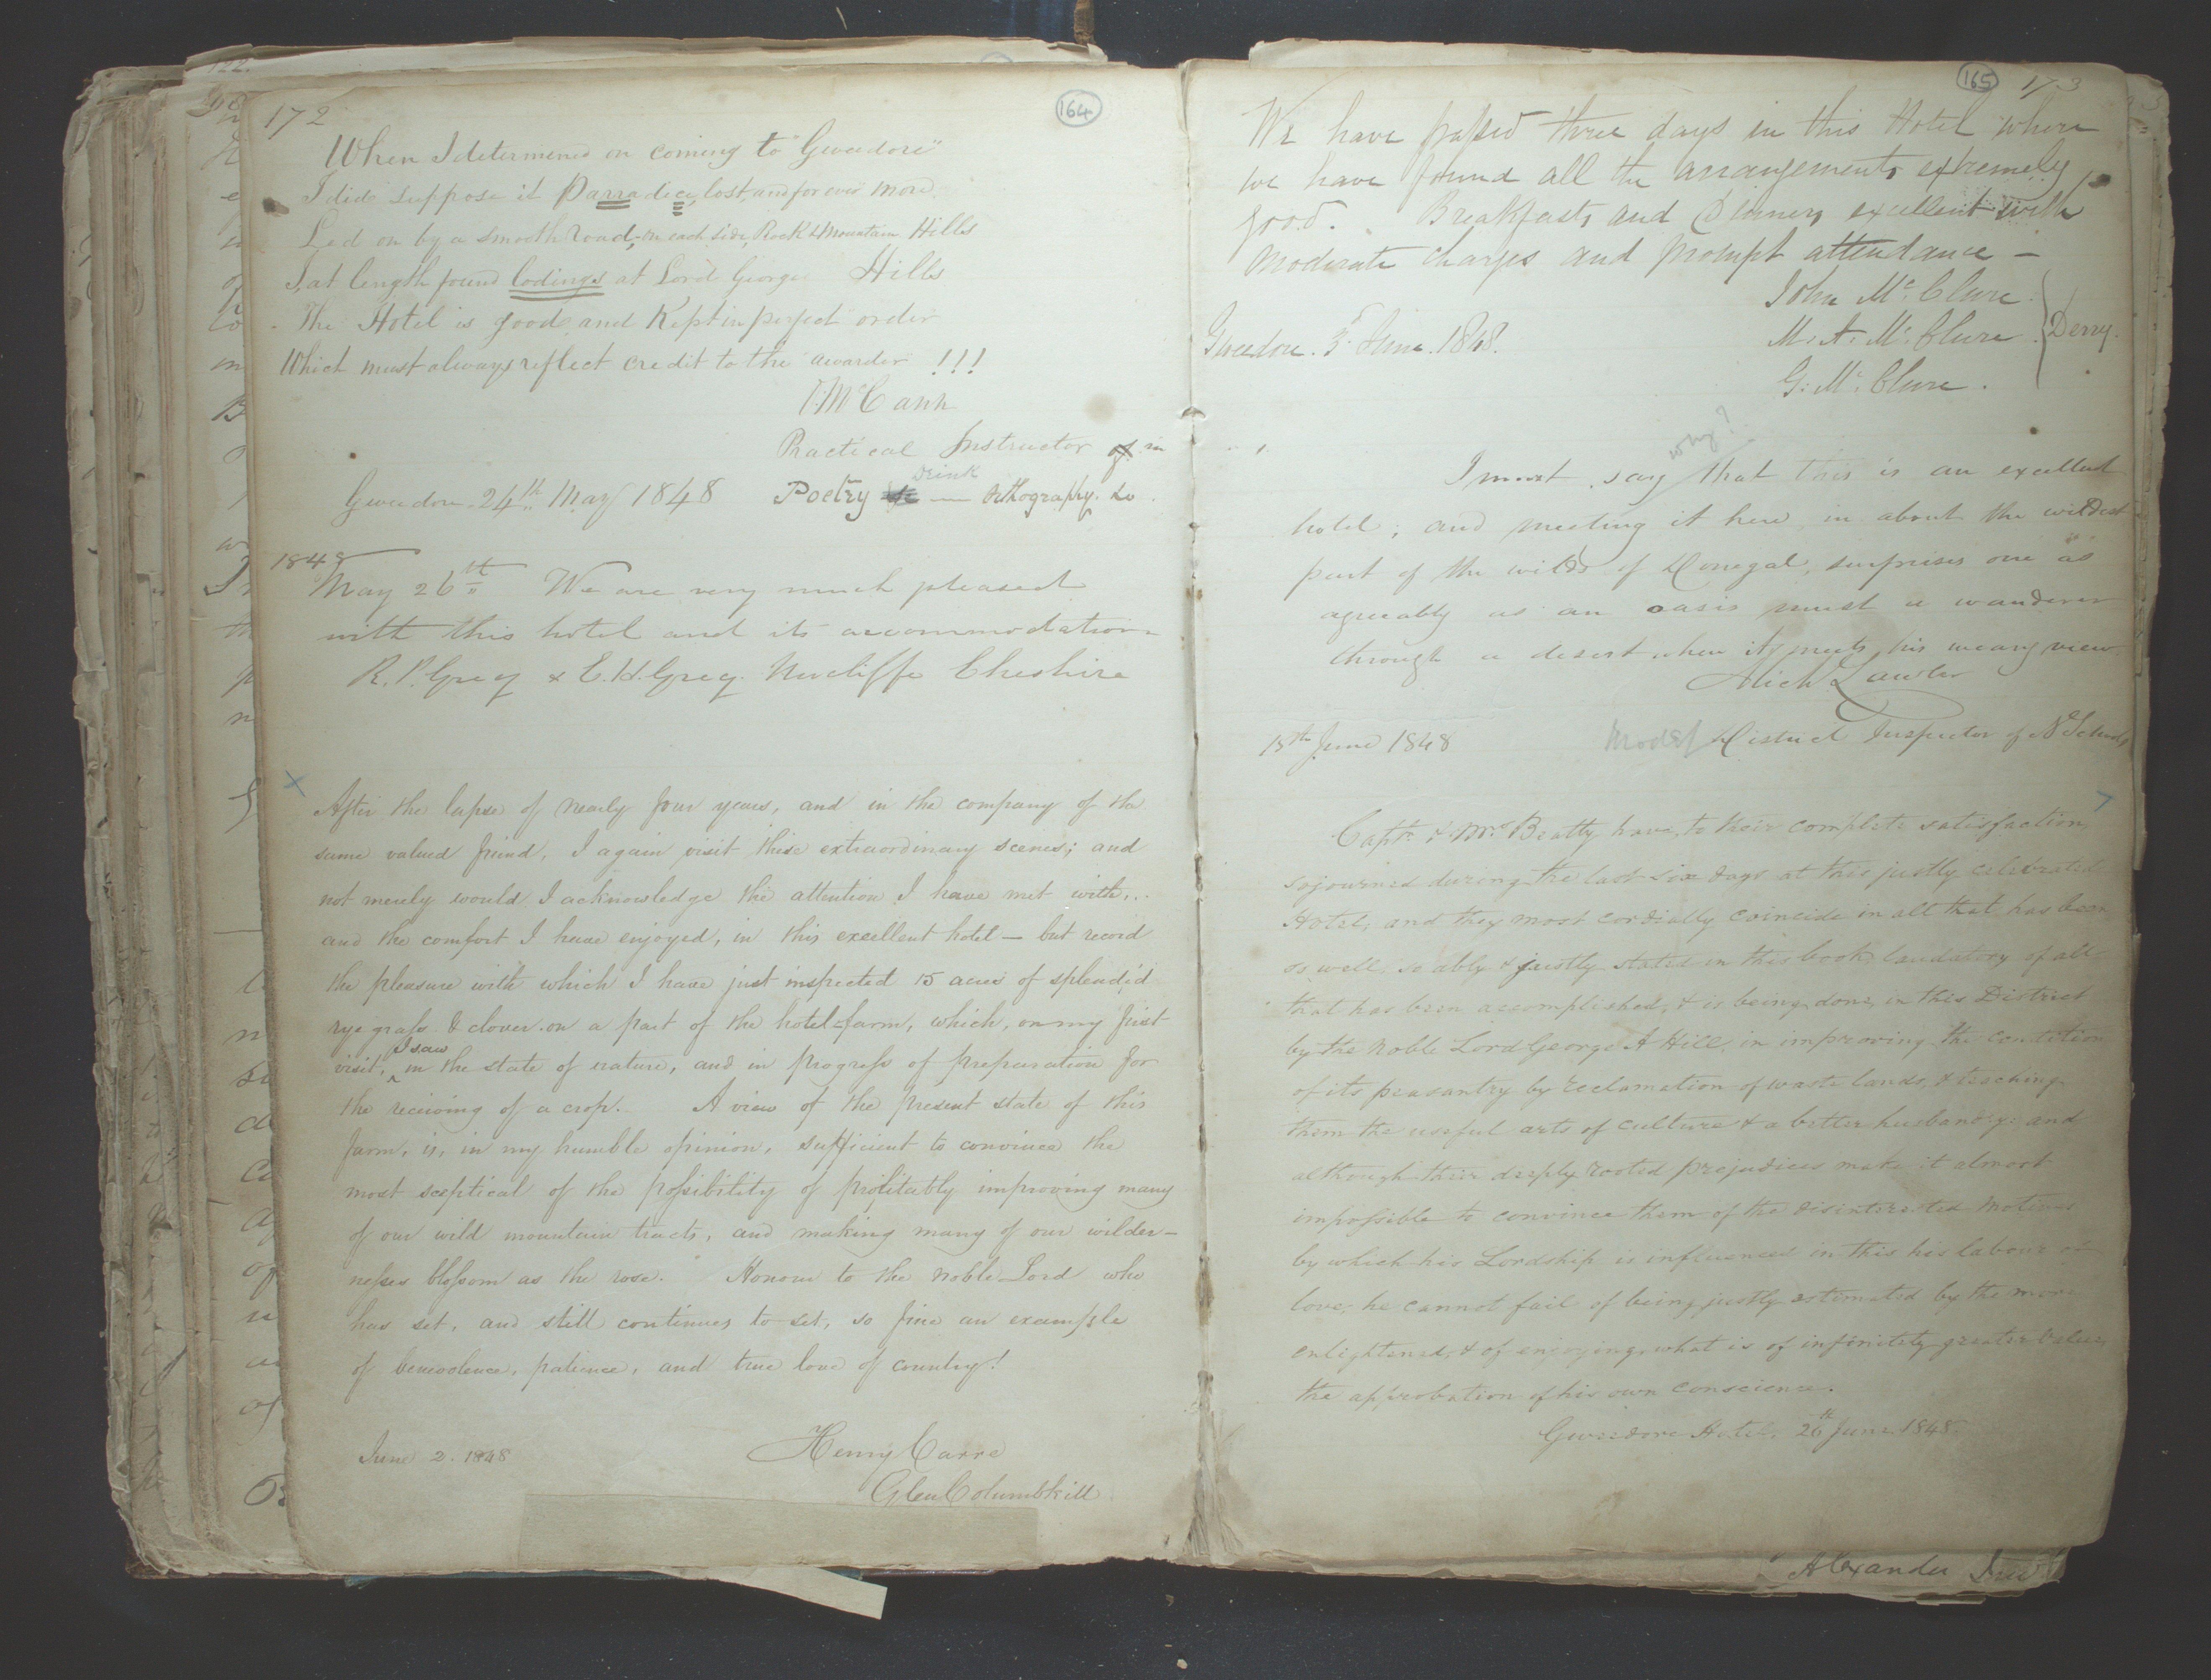 172
164
When I determened on coming to "Gweedore"
I did suppose it Parradice, lost, and for ever more
Led on by a smooth road, on each side, Rock & Mountain Hills
I, at length found lodings at Lord George Hills
The Hotel is good and Kept in perfect order
Which must always reflect credit to the awarder !!!
McCann
Practical Instructor of in
Drink
Gweedore 24th May 1848 Poetry — Orthography &c.
1848
May 26th We are very much pleased
with this hotel and its accommodation
R. P. Greg & E. H. Greg. Norcliffe Cheshire
x
After the lapse of nearly four years, and in the company of the
same valued friend, I again visit these extraordinary scenes; and
not merely would I acknowledge the attention I have met with...
and the comfort I have enjoyed, in this excellent hotel — but record
the pleasure with which I have just inspected 15 acres of splendid
rye grass & clover on a part of the hotel-farm, which, on my first
I saw
visit, ^ in the state of nature, and in progress of preparation for
the receiving of a crop. A view of the present state of this
farm, is, in my humble opinion, sufficient to convince the
most sceptical of the possibility of profitably improving many
of our wild mountain tracts, and making many of our wilder-
nesses blossom as the rose. Honour to the noble Lord who
has set, and still continues to set, so fine an example
of benevolence, patience, and true love of country!
June 2. 1848 Henry Carre
Glen Columbkill
165
173
We have passed three days in this Hotel where
we have found all the arrangements extremely
good. Breakfasts and Dinners excellent with
moderate charges and prompt attendance —
John McClure
Gweedore. 3d June. 1848. M. A. McClure } Derry.
G. McClure.
why?
I must say that this is an excellent
hotel; and meeting it here in about the wildest
part of the wilds of Donegal, surprises one as
agreeably as an oasis must a wanderer
through a desert when it meets his weary view
Mich Lawler
15th June 1848 Model District Inspector of N. Schools
Captn & Mrs Beatty have, to their complete satisfaction,
sojourned during the last six days at this justly celebrated
Hotel; and they most cordially coincide in all that has been
so well, so ably & justly stated in this book laudatory of all
that has been accomplished, & is being done, in this District
by the noble Lord George A Hill, in improving the condition
of its peasantry by reclamation of waste lands, & teaching
them the useful arts of culture & a better husbandry: and
although their deeply rooted prejudices make it almost
impossible to convince them of the disinterested motives
by which his Lordship is influenced in this his labour of
love; he cannot fail of being justly estimated by the more
enlightened, & of enjoying, what is of infinitely greater value,
the approbation of his own conscience.
Gweedore Hotel. 26th June 1848.
Alexander